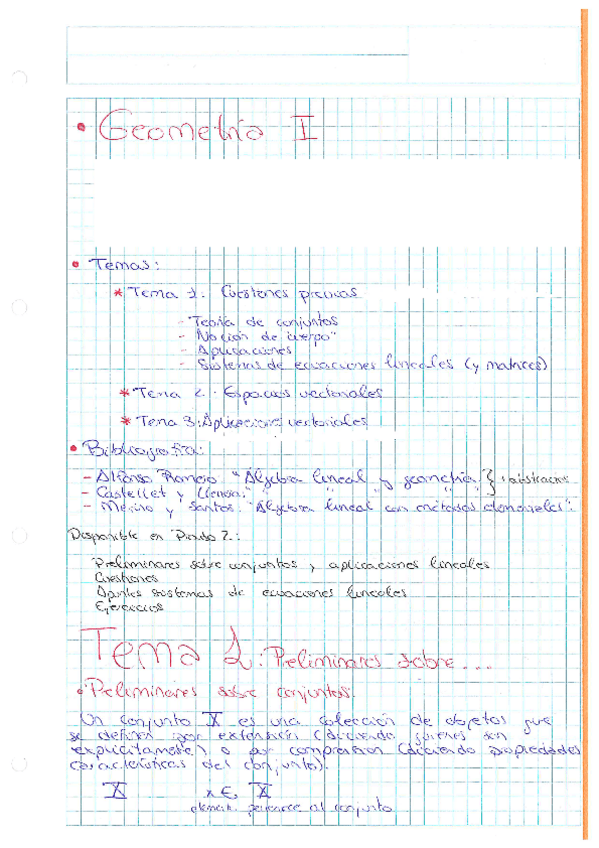 • Geometría I
• Temas:
* Tema 1: Cuestiones previas
- Teoría de conjuntos
- Noción de "cuerpo"
- Aplicaciones
- Sistemas de ecuaciones lineales (y matrices)
* Tema 2: Espacios vectoriales
* Tema 3: Aplicaciones vectoriales
• Bibliografía:
- Alfonso Romero "Álgebra lineal y geometría" }
- Castellet y Llerena: " " "
- Merino y Santos: "Álgebra lineal con métodos elementales".
Disponible en Prado 2:
Preliminares sobre conjuntos y aplicaciones lineales
Cuestiones
Apuntes sistemas de ecuaciones lineales
Ejercicios
Tema 1: Preliminares sobre...
• Preliminares sobre conjuntos:
Un conjunto X es una colección de objetos que
se definen por extensión (diciendo quienes son
explícitamente) o por comprensión (diciendo propiedades
características del conjunto).
X x ∈ X
elemen. pertenece al conjunto